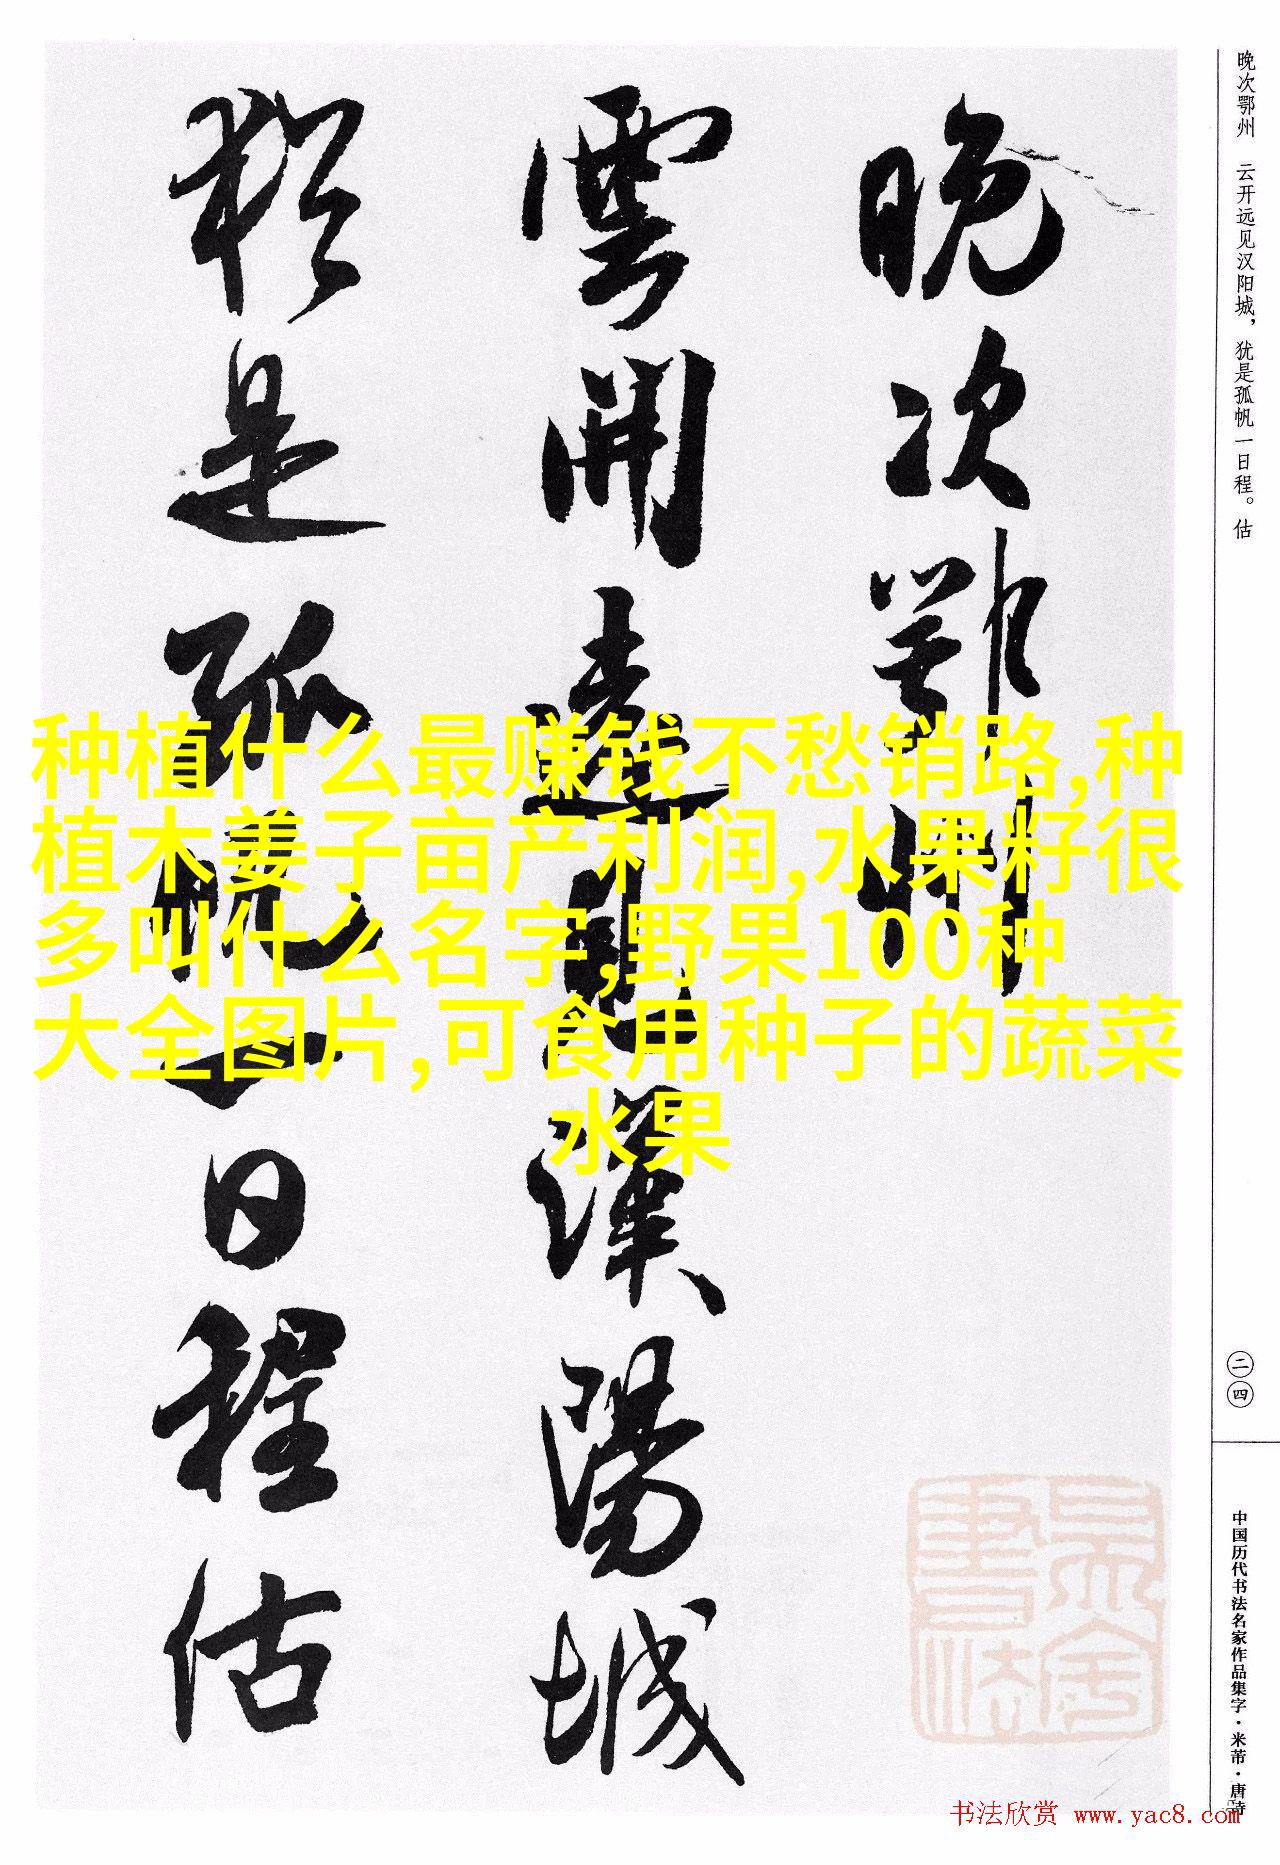 晚次鄂州
雲開遠見漢陽城
猶是孤帆一日程估
晚次鄂州 云开远见汉阳城，犹是孤帆一日程。估
二四
中国历代书法名家作品集字·米芾·唐诗
种植什么最赚钱不愁销路,种
植木姜子亩产利润,水果籽很
多叫什么名字,野果100种
大全图片,可食用种子的蔬菜
水果
书法欣赏 www.yac8.com